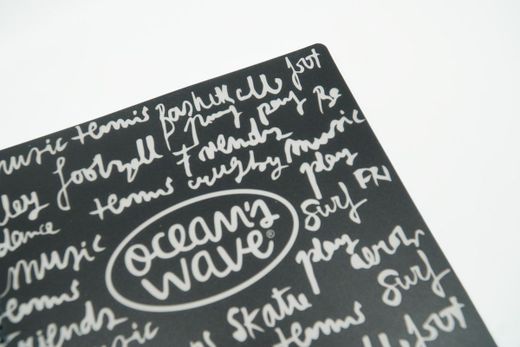 music tennis basketball foot
football play play Be
ley friends
dance tennis rugby music
music play
ocean's wave® surf FRI
tennis play
friends music skate tennis surf
foot